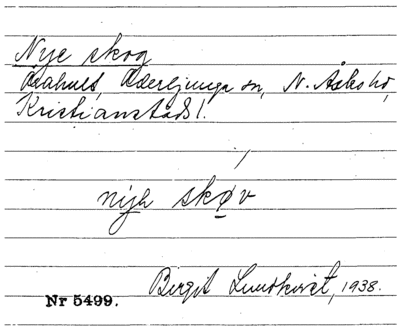 Nye skog
Oderljunga sn, N. Åsbo hd,
Kristianstads l.
nyh skøv
Birgit Lundkvist, 1938.
Nr 5499.